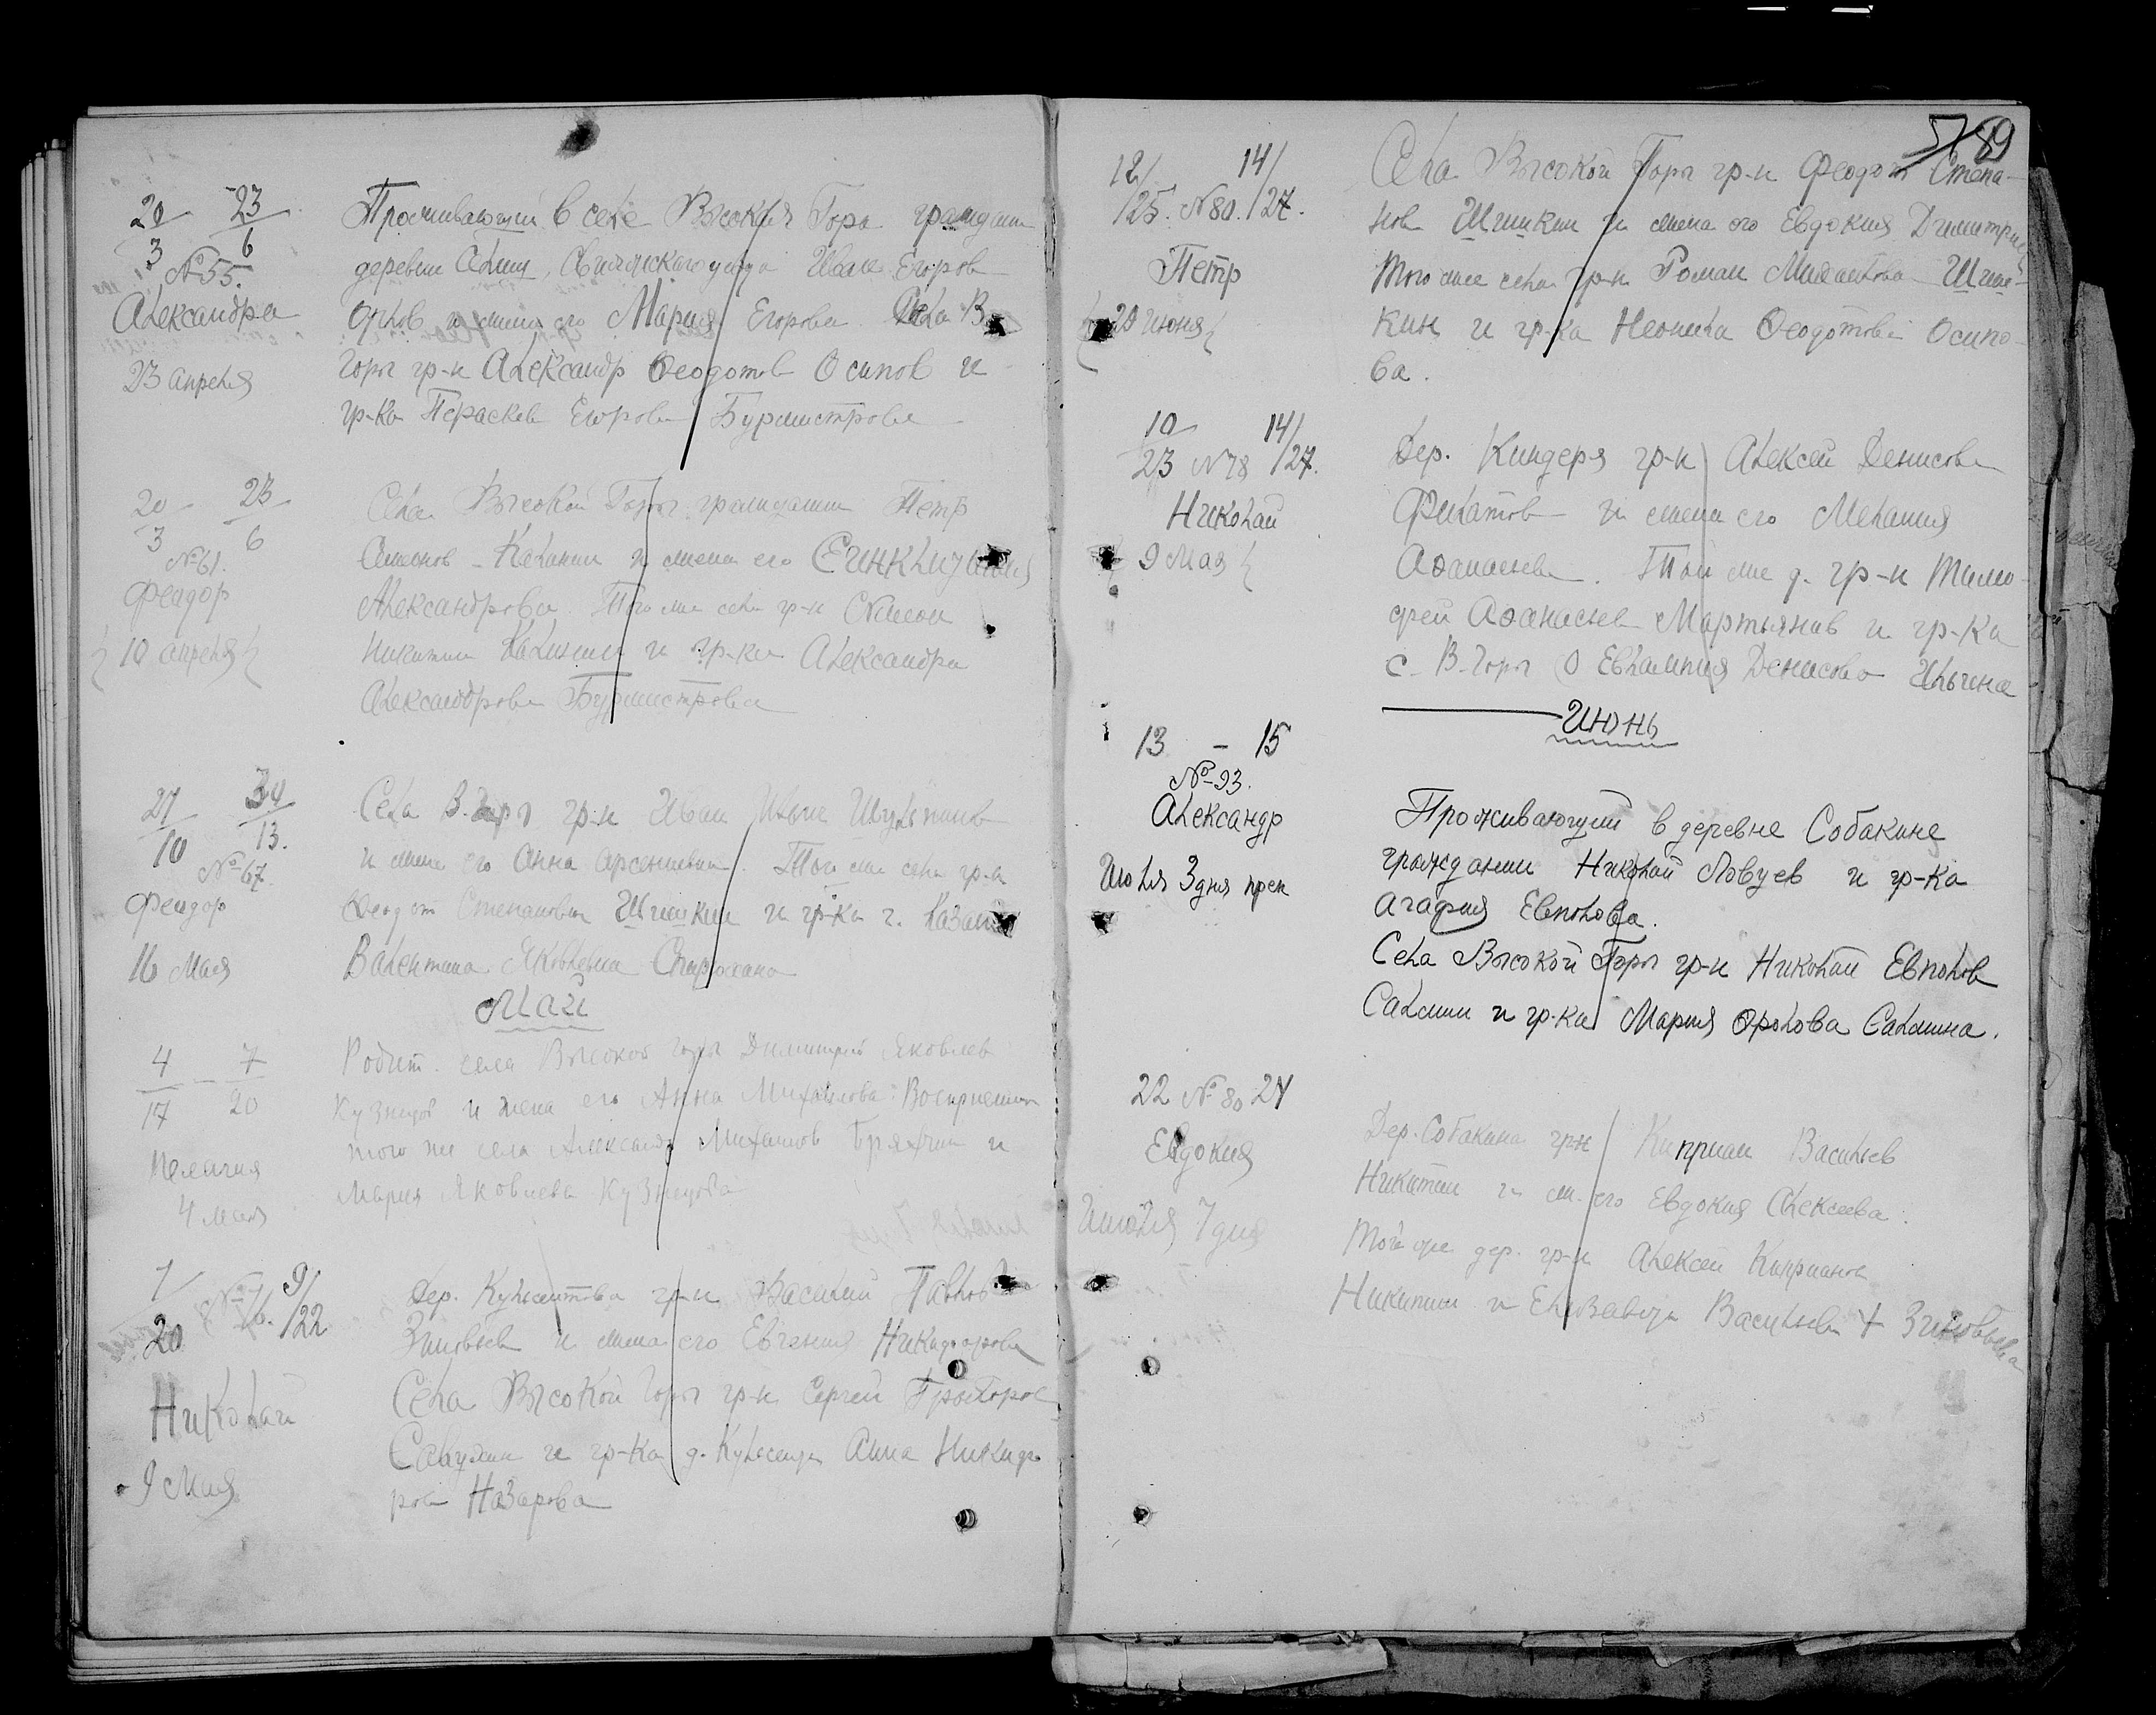 20 23
3 6
№ 55.
Александра
23 апреля
Проживающий в селе Высокия Гора граждан
деревни Иван Егоров
Орлов и жена его Мария Егорова Села В.
Горы гр-н Александр Феодотов Осипов и
гр-ка Параскева Егорова Бурмистрова
20 23
3 6
№ 61.
Феодор
10 апреля
Села Высокой Горы гражданин Петр
и жена его
Александрова. Того же села гр-н Симеон
Никитин Калинин и гр-ка Александра
Александрова Бурмистрова
27 30
10 13.
№ 67.
Феодор
16 Мая
Села В. Горы гр-н Иван Ильин
и жена его Анна Арсениевна. Того же села гр-н
Феодот Степанович Шишкин и гр-ка г. Казани
Валентина Яковлевна
Май
4 – 7
17 20
Пелагия
4 мая
Родит. села Высокой Горы Димитрий Яковлев
Кузнецов и жена его Анна Михайлова: Восприемники
того же села Александр Михайлов и
Мария Яковлева Кузнецова
7 9/
20 № 76. /22
Николай
9 Мая
Дер. гр-н Василий Павлов
Зиновьев и жена его Евгения Никифорова
Села Высокой Горы гр-н Сергей
и гр-ка д. Анна Никифо
рова Назарова
89
12/ 14/
/25. № 80. /27.
Петр
29 июня
Села Высокой Горы гр-н Феодот Степа-
нов Шишкин и жена его Евдокия Димитриев
Того же села гр-н Роман Михайлова Шиш-
кин и гр-ка Неонила Феодотова Осипо-
ва.
10 14/
23 № 78 /27.
Николай
9 Мая
Дер. Киндеря гр-н Алексей Денисов
Филатов и жена его Мелания
Афанасьева. Той же д. гр-н Тимо-
фей Афанасьев Мартьянов и гр-ка
с. В-Горы Евлампия Денисова Ильина
Июнь
13 – 15
№ 93.
Александр
Июля 3 дня
Проживающий в деревне Собакине
гражданин Николай и гр-ка
Агафия Евполова.
Села Высокой Горы гр-н Николай Евполов
Салмин и гр-ка Мария Фролова Салмина.
22 № 80 24
Евдокия
Июля 7 дня
Дер. Собакина гр-н Киприан Васильев
Никитин и ж. его Евдокия Алексеева.
Той же дер. гр-н Алексей Киприанов
Никитин и Елизавета Васильева Зиновьева